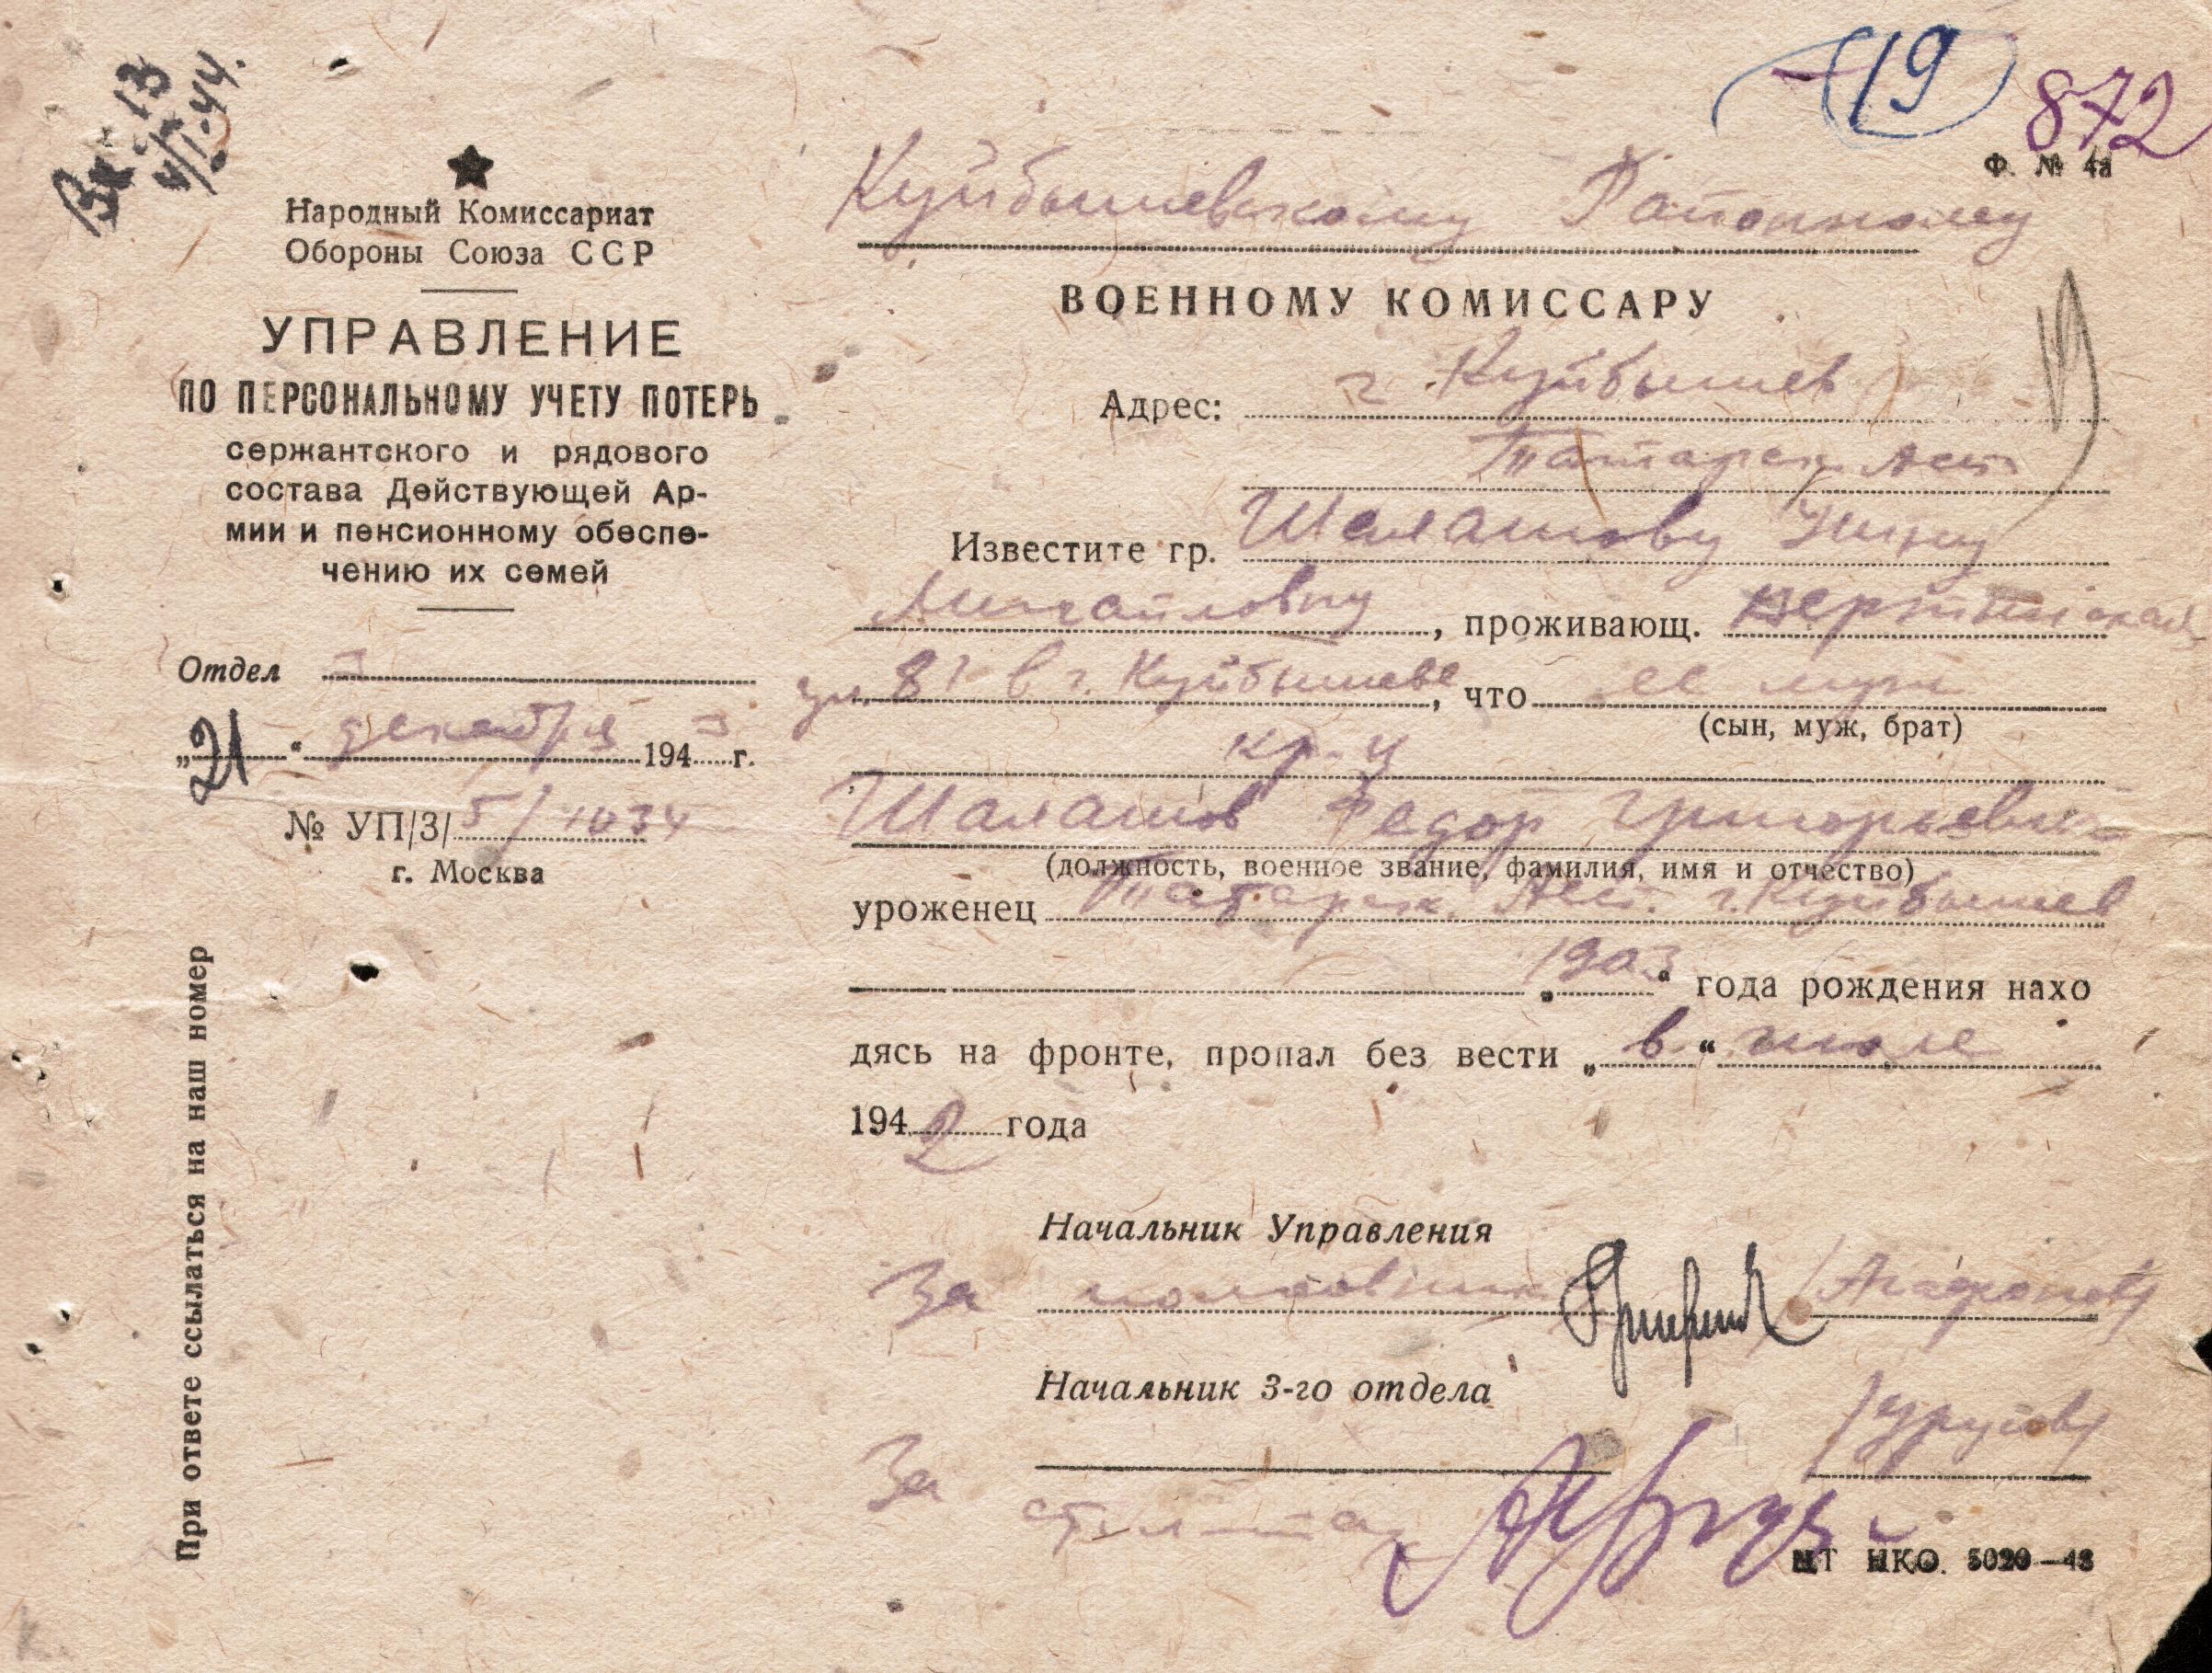 Вх. 13
4/I-44.
19
872
Ф. № 4а
Народный Комиссариат
Обороны Союза ССР
УПРАВЛЕНИЕ
ПО ПЕРСОНАЛЬНОМУ УЧЕТУ ПОТЕРЬ
сержантского и рядового
состава Действующей Ар-
мии и пенсионному обеспе-
чению их семей
Отдел
„21“ декабря 1943 г.
№ УП/3/5/1034
г. Москва
При ответе ссылаться на наш номер
Куйбышевскому Районному
ВОЕННОМУ КОМИССАРУ
Адрес: г. Куйбышев
Татарск.
Известите гр. Шалашову Нину
Михайловну, проживающ.
ул. 81 в г. Куйбышеве, что ее муж
(сын, муж, брат)
кр-ц
Шалашов Федор Григорьевич
(должность, военное звание, фамилия, имя и отчество)
уроженец Татарск. г. Куйбышев
„1903“ года рождения нахо
дясь на фронте, пропал без вести „в“ июле
1942 года
Начальник Управления
За полковник /Агафонов/
Начальник 3-го отдела
За
МТ НКО. 5020—43